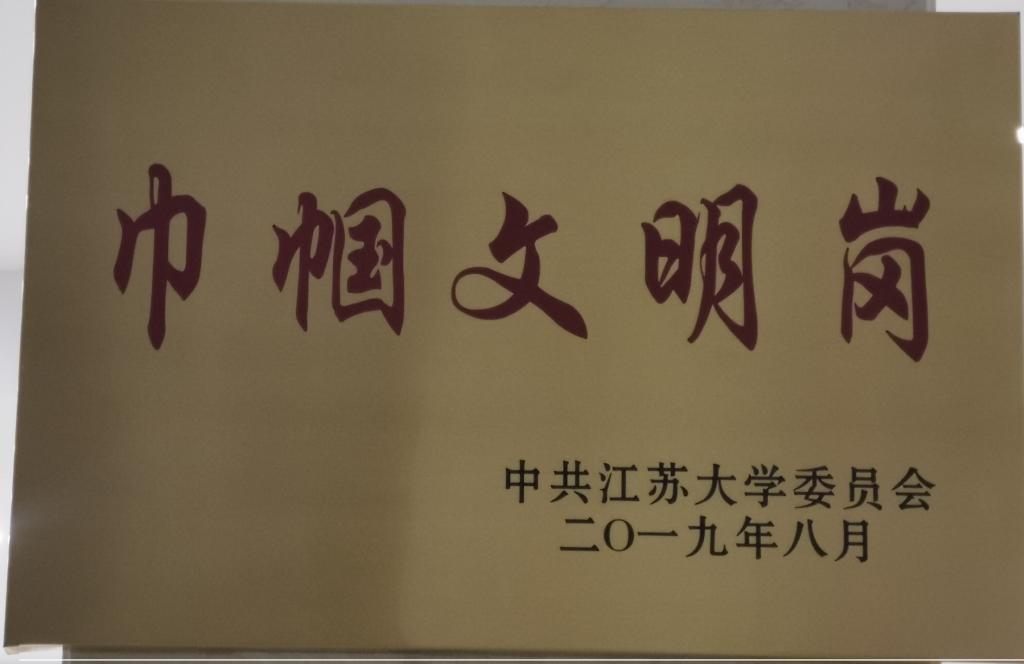 巾帼文明岗
中共江苏大学委员会
二〇一九年八月